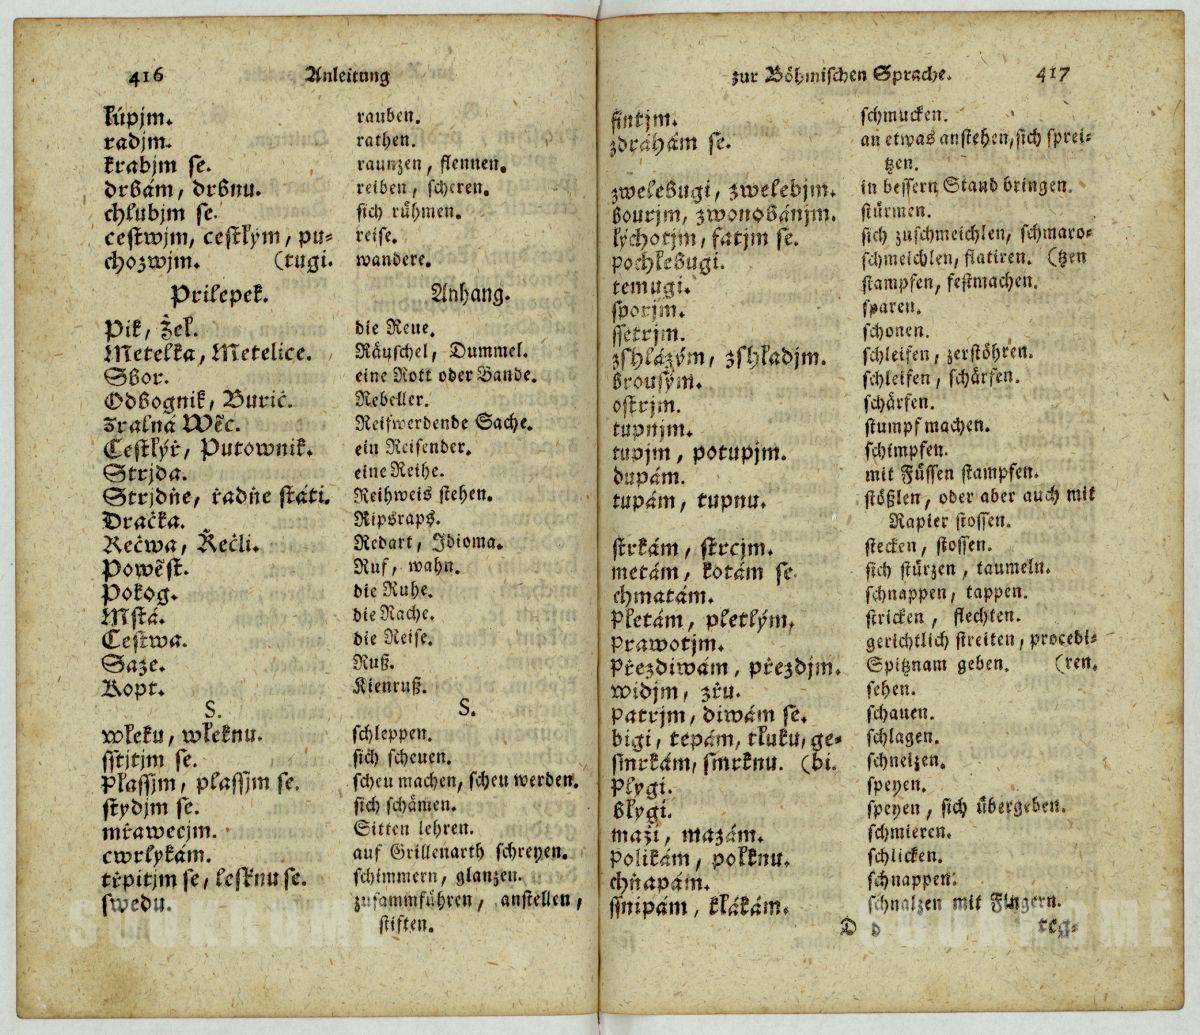 416 Anleitung
kúpjm. rauben.
radjm. rathen.
krabjm se. raunzen, flennen.
drbám, drbnu. reiben, scheren.
chlubjm se. sich rühmen.
cestwjm, cestkým, pu- reise.
chozwjm. (tugi. wandere.
Přilepek. Anhang.
Pik, Žel. die Reue.
Metelka, Metelice. Räuschel, Dummel.
Sbor. eine Rott oder Bande.
Odbognik, Buřič. Rebeller.
Zralná Wěc. Reifwerdende Sache.
Cestkýř, Putownik. ein Reisender.
Strjda. eine Reihe.
Strjdňe, řadňe státi. Reihweis stehen.
Dračka. Ripsraps.
Rečwa, Řečli. Redart, Idioma.
Powěst. Ruf, wahn.
Pokog. die Ruhe.
Msta. die Rache.
Cestwa. die Reise.
Saze. Ruß.
Kopt. Kienruß.
S. S.
wleku, wleknu. schleppen.
sstjtjm se. sich scheuen.
Plassjm, plassjm se. scheu machen, scheu werden.
stydjm se. sich schämen.
mrawecjm. Sitten lehren.
cwrlykám. auf Grillenarth schreyen.
třpitjm se, lesknu se. schimmern, glanzen.
swedu. zusammführen, anstellen,
stiften.
zur Böhmischen Sprache. 417
fintjm. schmucken.
zdráhám se. an etwas anstehen, sich sprei-
tzen.
zwelebugi, zwelebjm. in bessern Stand bringen.
bouřjm, zwonobánjm. stürmen.
lýchotjm, fatjm se. sich zuschmeichlen, schmaro-
pochlebugi. schmeichlen, flatiren. (tzen
temugi. stampfen, festmachen.
spořjm. sparen.
ssetrjm. schonen.
zshlázým, zshladjm. schleifen, zerstöhren.
brousým. schleifen, schärfen.
ostrjm. schärfen.
tupnjm. stumpf machen.
tupjm, potupjm. schimpfen.
dupám. mit Füssen stampfen.
tupám, tupnu. stößlen, oder aber auch mit
Rapier stossen.
strkám, strcjm. stecken, stossen.
metám, kotám se. sich stürzen, taumeln.
chmatám. schnappen, tappen.
Pletám, pletkým, stricken, flechten.
Prawotjm. gerichtlich streiten, procebi-
Přezdiwám, přezdjm. Spitznam geben. (ren.
widjm, zřu. sehen.
patrjm, diwám se. schauen.
bigi, tepám, tluku, ge- schlagen.
smrkám, smrknu. (bi. schneizen.
Plygi. speyen.
blygi. speyen, sich übergeben.
maži, mazám. schmieren.
polikám, polknu. schlicken.
chňapám. schnappen.
ssnipám, klákám. schnalzen mit Fingern.
D d teg-